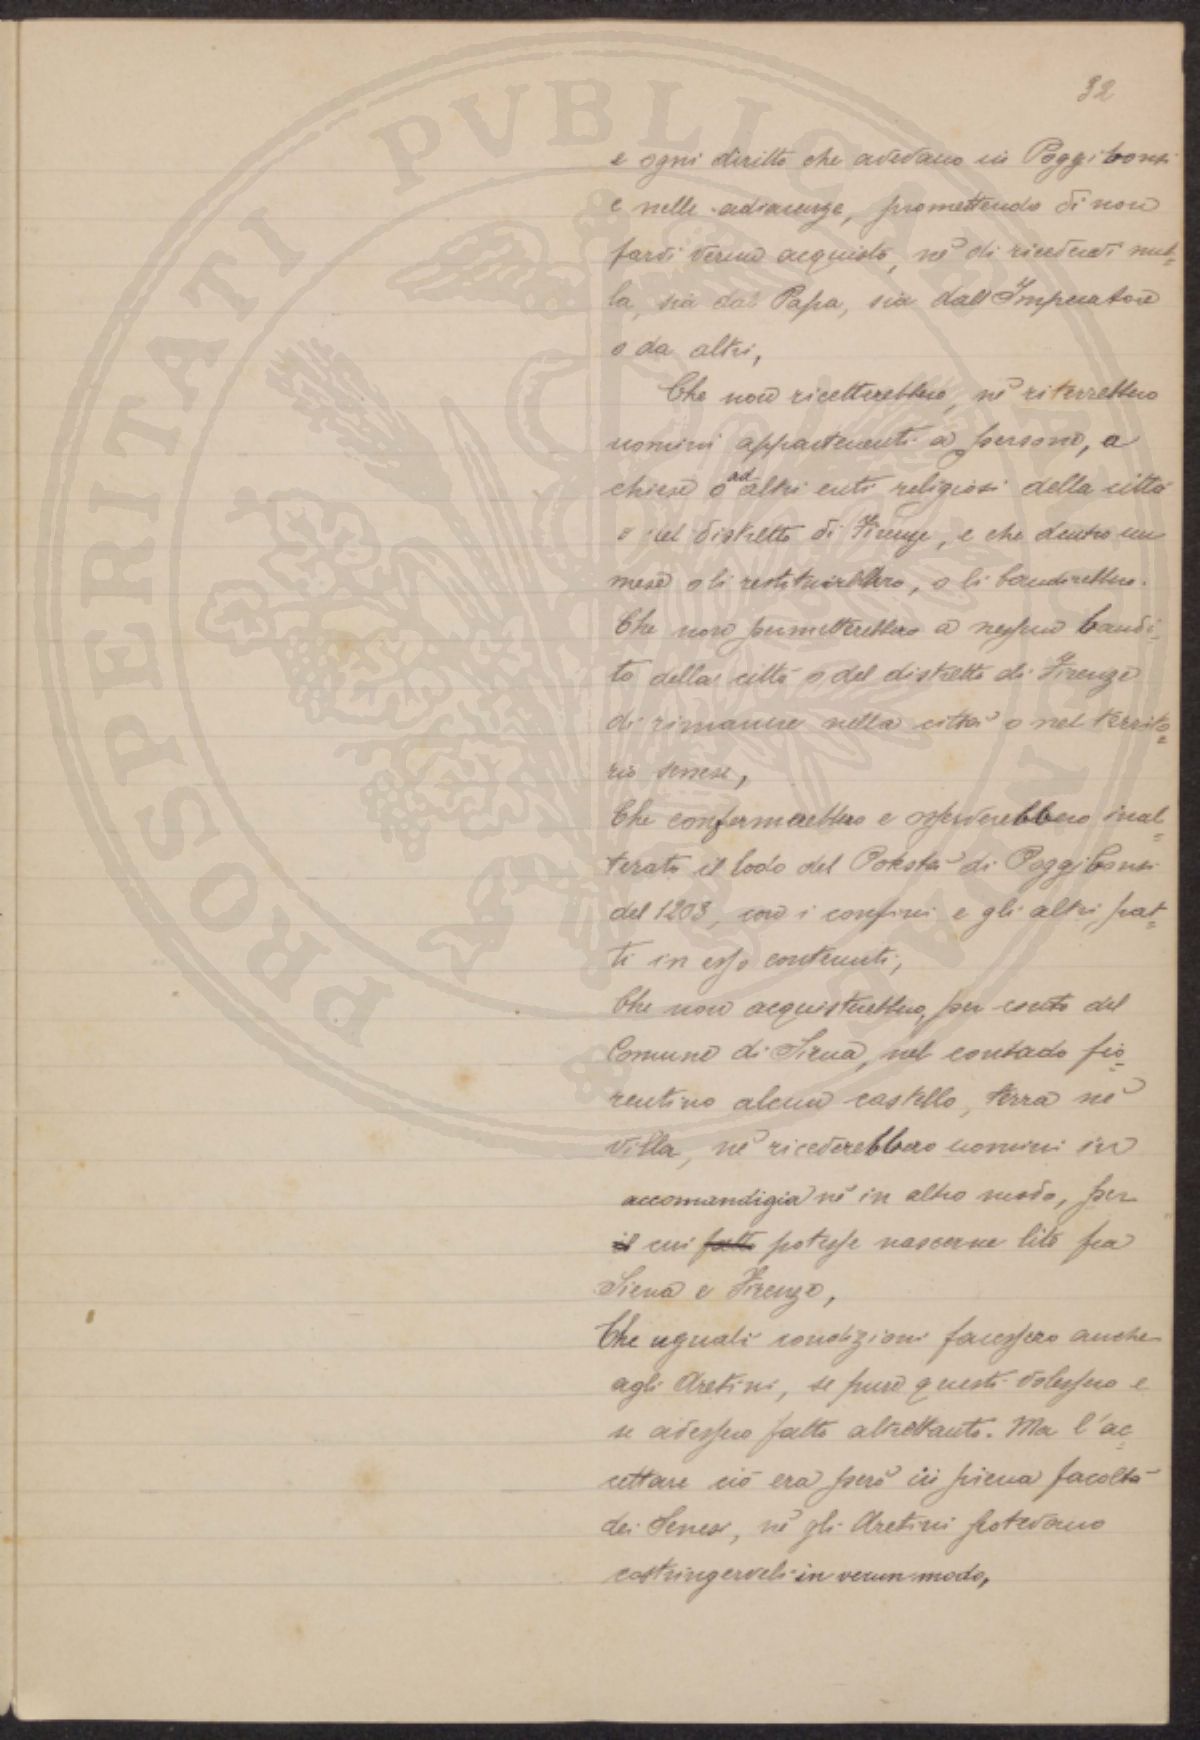 32
e ogni diritto che avevano in Poggibonsi
e nelle adiacenze, promettendo di non
farvi verun acquisto, nè di ricevervi nul=
la, sia dal Papa, sia dall'Imperatore
o da altri,
Che non ricetterebbero, nè riterrebbero
uomini appartenenti a persone, a
chiese o ad altri enti religiosi della città
o nel distretto di Firenze, e che dentro un
mese o li restituirebbero, o li bandirebbero.
Che non permetterebbero a nessun bandi=
to della città o del distretto di Firenze
di rimanere nella città o nel territo=
rio senese,
Che confermerebbero e osserverebbero inal=
terato il lodo del Potestà di Poggibonsi
del 1203, con i confini e gli altri pat=
ti in esso contenuti,
Che non acquisterebbero, per conto del
Comune di Siena, nel contado fio=
rentino alcun castello, terra nè
villa, nè riceverebbero uomini in
accomandigia nè in altro modo, per
il cui fatto potesse nascerne lite fra
Siena e Firenze,
Che uguali condizioni facessero anche
agli Aretini, se pure questi volessero e
se avessero fatto altrettanto. Ma l'ac=
cettare ciò era però in piena facoltà
dei Senesi, nè gli Aretini potevano
costringerveli in verun modo,
PROSPERITATI PVBLICAE